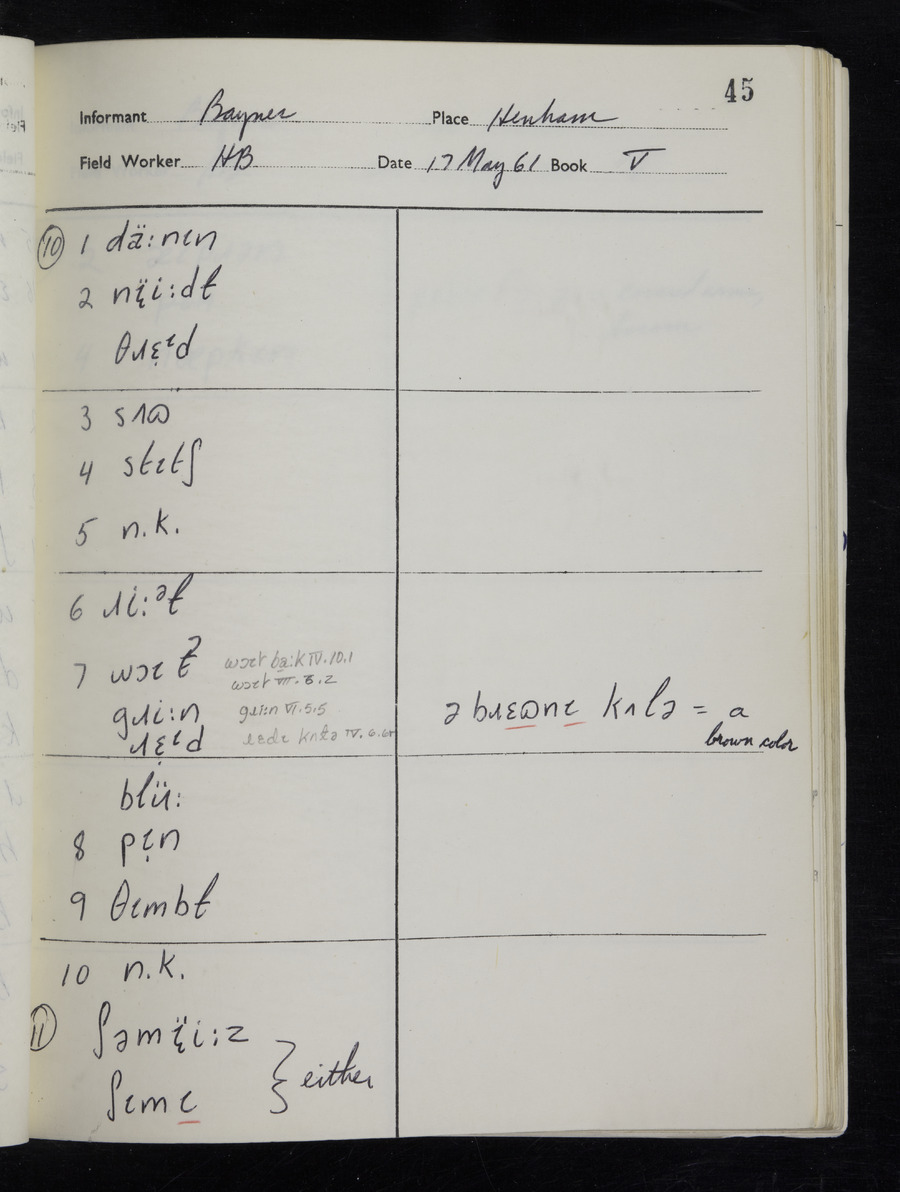 45
Informant Bayner Place Henham
Field Worker HB Date 17 May 61 Book V
⑩ 1 dä:nɩn
2 nɩ̣̈i:dɫ
θɹɛ̣ᶥd
3 sʌɷ
4 stɩtʃ
5 n.k.
6 ɹi:ᵊɫ
7 wɔɩtˀ wɔɩt ba̤:k IV.10.1
wɔɩt VII.8.2
gɹi:n gɹi:n VI.5.5
ɹɛ̣ᶥd
ə bɹɛɷnɩ kʌlə = a
brown color
blü:
8 pɩ̣n
9 θɩmbɫ
10 n.k.
⑪ ʃəmɩ̣̈i:z
ʃɩmɩ } either